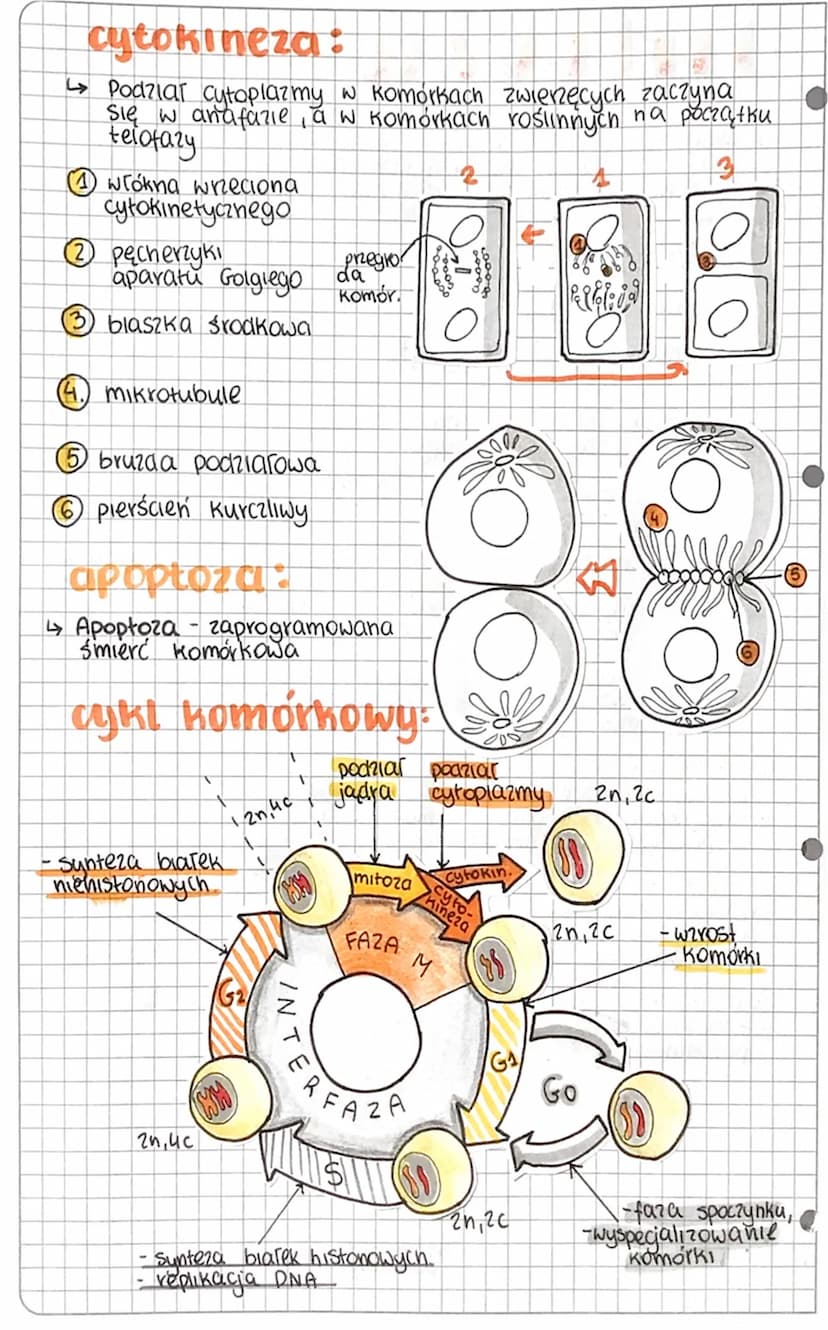 cytokineza:
↳ Podział cytoplazmy w komórkach zwierzęcych zaczyna
się w anafazie, a w komórkach roślinnych na początku
telofazy
① włókna wrzeciona
cytokinetycznego
② pęcherzyki
aparatu Golgiego
③ blaszka środkowa
④. mikrotubule
⑤ bruzda podziałowa
⑥ pierścień kurczliwy
2
1
3
przegro
da
komór.
1
3
4
5
6
apoptoza:
↳ Apoptoza - zaprogramowana
śmierć komórkowa
cykl komórkowy:
podział
jądra
podział
cytoplazmy
2n,2c
2n,4c
- synteza białek
niehistonowych
mitoza
cytokin.
cyto-
kineza
FAZA M
2n,2c
- wzrost
komórki
G2
INTERFAZA
G1
G0
2n,4c
S
2n,2c
- faza spoczynku,
- wyspecjalizowanie
komórki
- synteza białek histonowych
- replikacja DNA